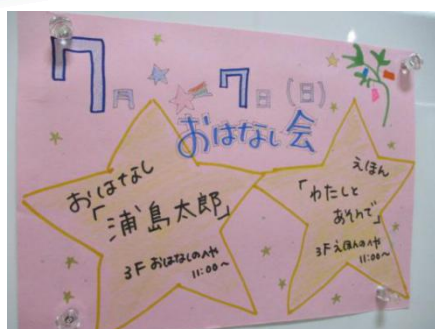 7月 7日(日)
おはなし会
おはなし
「浦島太郎」
3F おはなしのへや
11:00〜
えほん
「わたしと
あそんで」
3F えほんのへや
11:00〜